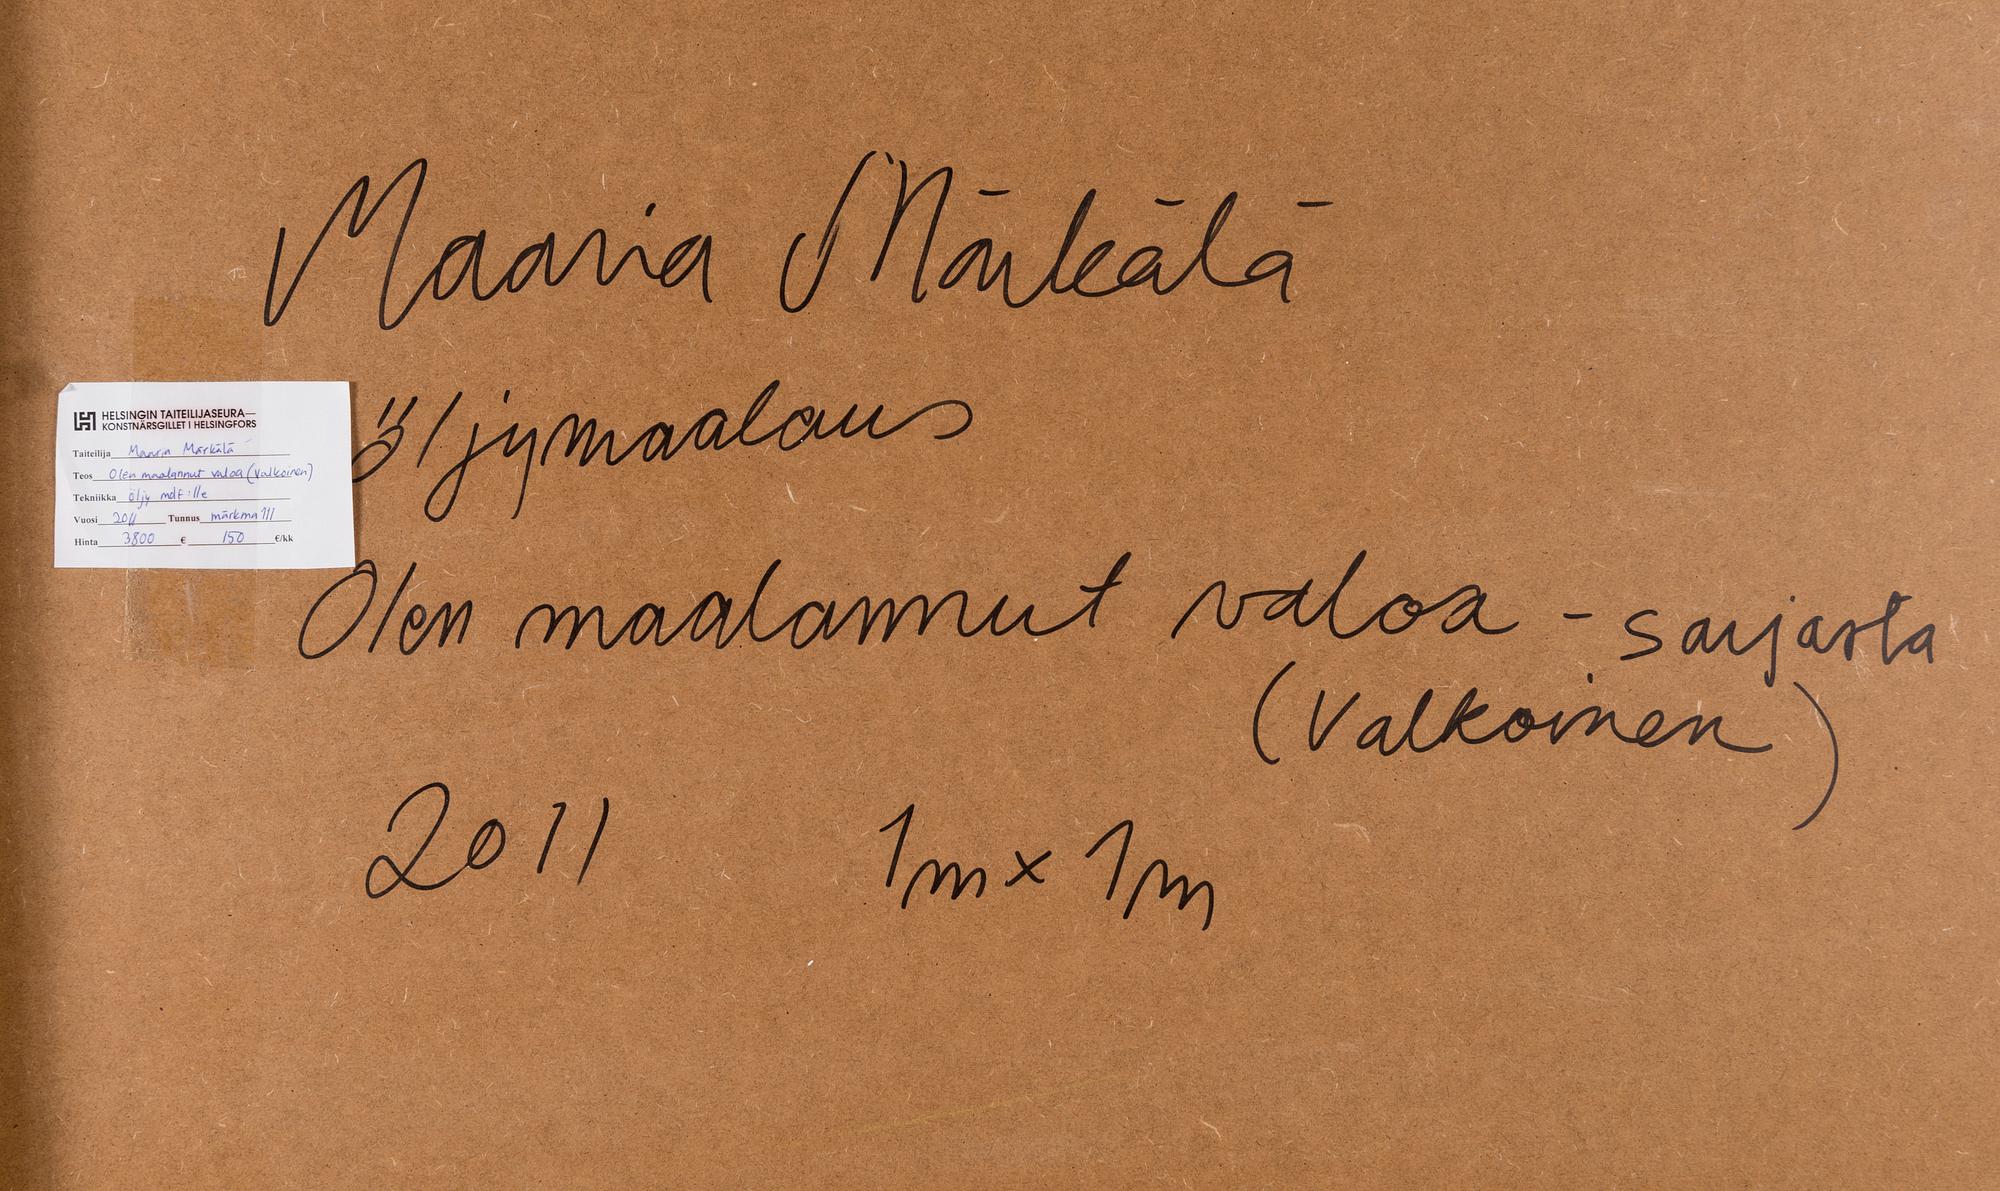 Maaria Märkälä
öljymaalaus
Olen maalannut valoa - sarjasta
(Valkoinen)
2011 1m x 1m
HELSINGIN TAITEILIJASEURA—
KONSTNÄRSGILLET I HELSINGFORS
Taiteilija Maaria Märkälä
Teos Olen maalannut valoa (Valkoinen)
Tekniikka öljy mdf:lle
Vuosi 2011 Tunnus märkma111
Hinta 3800 € 150 €/kk